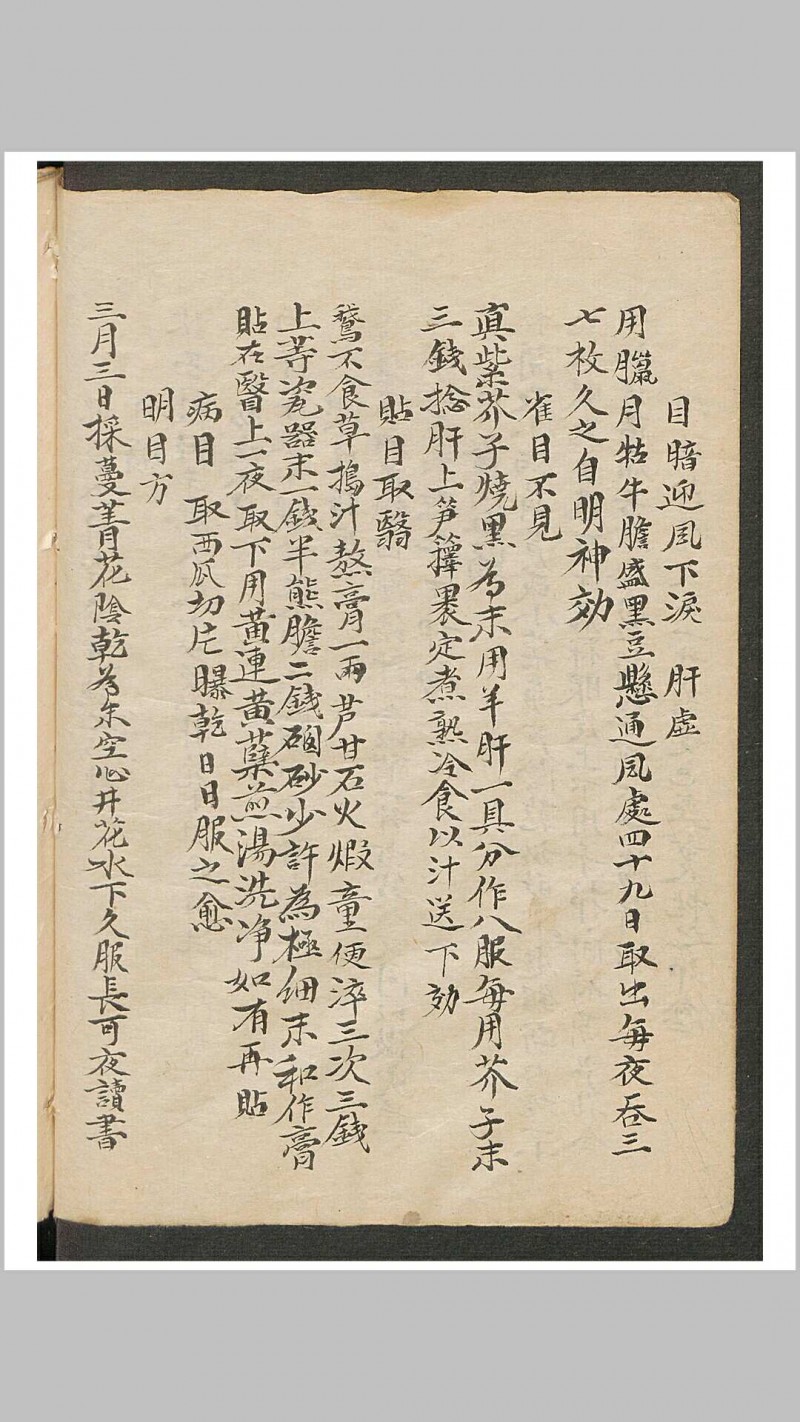 目暗迎風下淚　肝虛
用臘月牯牛膽盛黑豆懸通風處四十九日取出每夜吞三
七枚久之自明神効
雀目不見
真紫芥子燒黑為末用羊肝一具分作八服每用芥子末
三錢捻肝上笋籜裹定煮熟冷食以汁送下効
貼目取翳
鵞不食草搗汁熬膏一兩芦甘石火煅童便淬三次三錢
上等瓷器末一錢半熊膽二錢硇砂少許為極细末和作膏
貼在瞖上一夜取下用黃連黃蘗煎湯洗净如有再貼
病目　取西瓜切片曝乾日日服之愈
明目方
三月三日採蔓菁花陰乾為末空心井花水下久服長可夜讀書